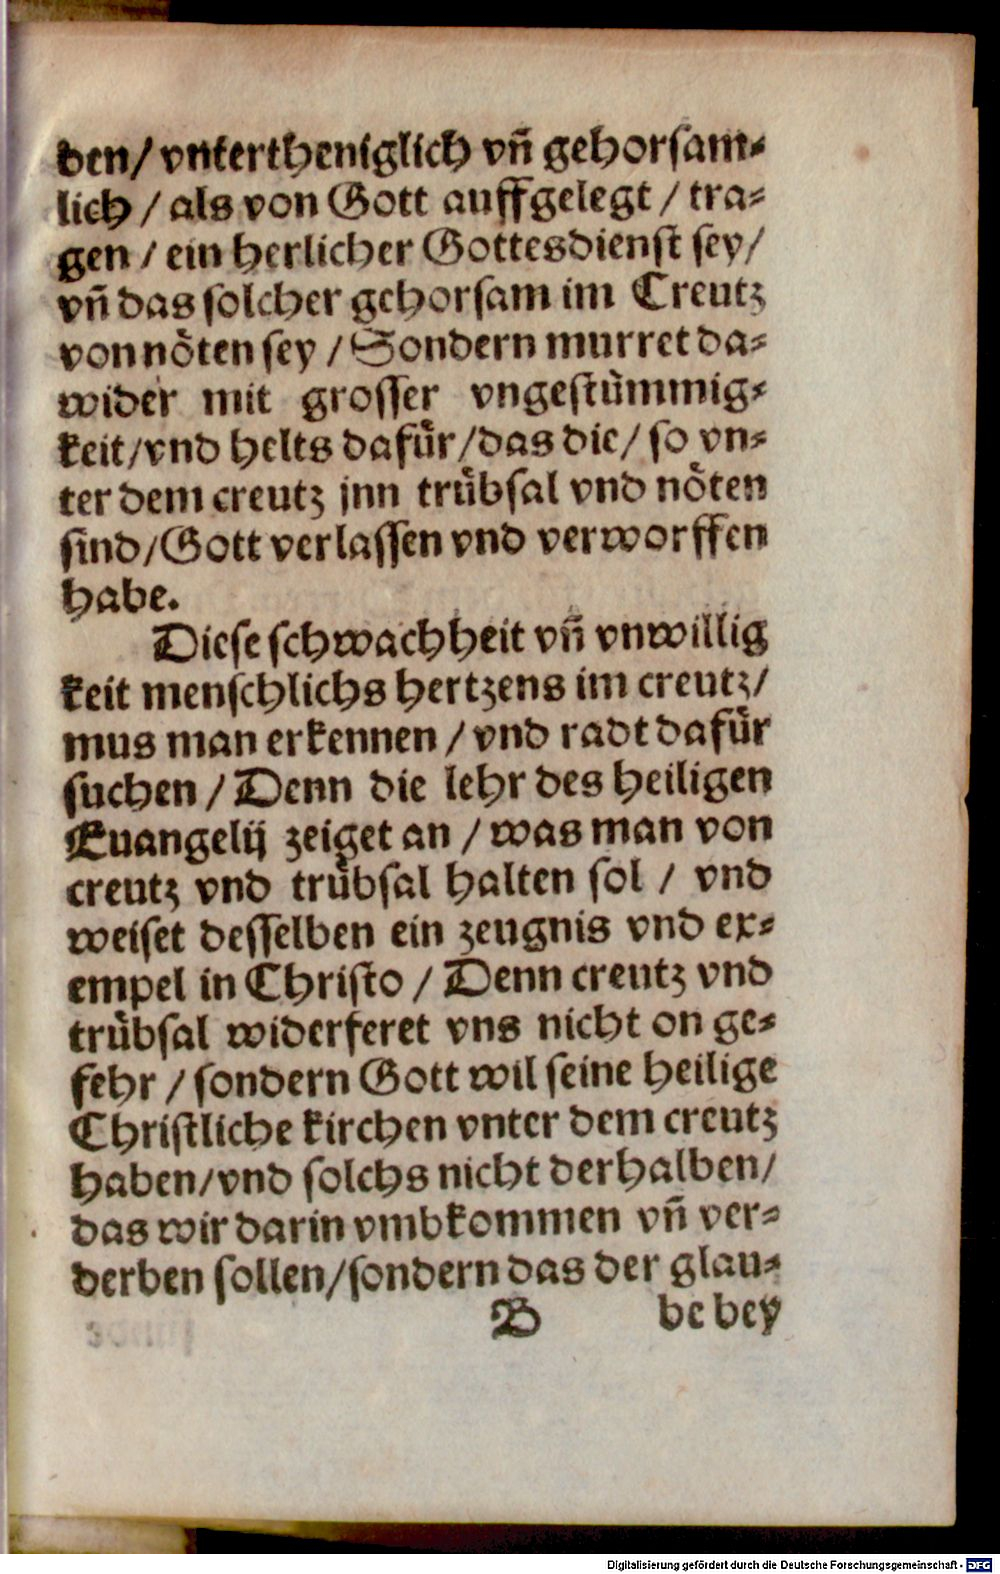 den/ vnterthenigſlich vñ gehorſam-
lich / als von Gott auffgelegt / tra-
gen / ein herlicher Gottesdienſt ſey/
vñ das ſolcher gehorſam im Creutz
von nöten ſey / Sondern murret da-
wider mit groſſer vngeſtümmig-
keit/vnd helts dafür/das die/ ſo vn-
ter dem creutz jnn trübſal vnd nöten
ſind/Gott verlaſſen vnd verworffen
habe.
Dieſe ſchwachheit vñ vnwillig
keit menſchlichs hertzens im creutz/
mus man erkennen / vnd radt dafür
ſuchen / Denn die lehr des heiligen
Euangelij zeiget an / was man von
creutz vnd trübſal halten ſol / vnd
weiſet deſſelben ein zeugnis vnd ex-
empel in Chriſto / Denn creutz vnd
trübſal widerferet vns nicht on ge-
fehr / ſondern Gott wil ſeine heilige
Chriſtliche kirchen vnter dem creutz
haben/vnd ſolchs nicht derhalben/
das wir darin vmbkommen vñ ver-
derben ſollen/ſondern das der glau-
B be bey
Digitalisierung gefördert durch die Deutsche Forschungsgemeinschaft - DFG